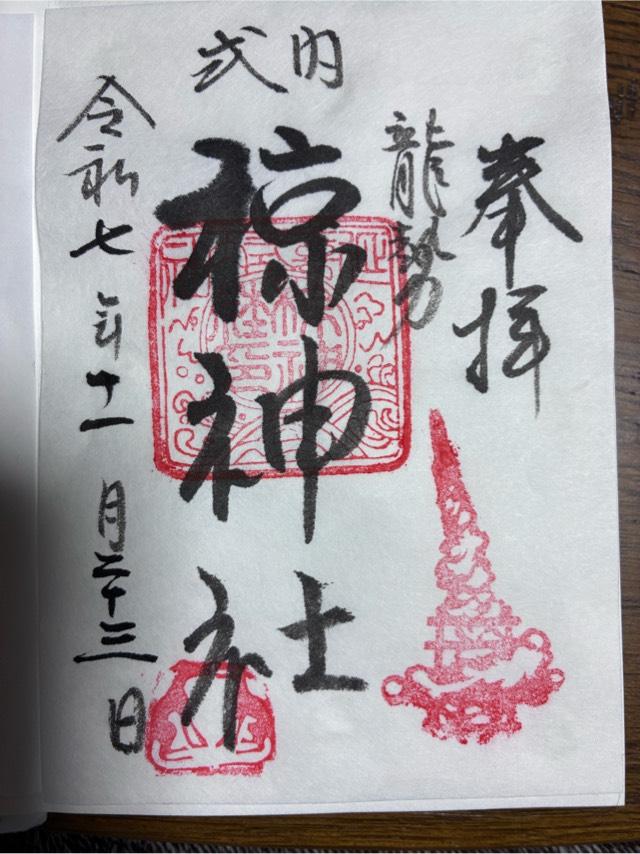 奉拝
龍勢
式内
椋神社
令和七年十一月二十三日